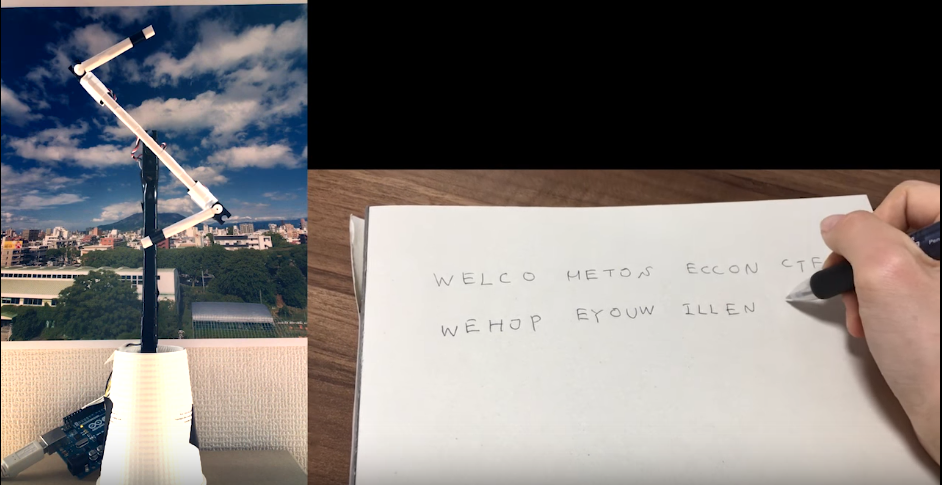 WELCO METOS ECCON CTF
WEHOP EYOUW ILLEN